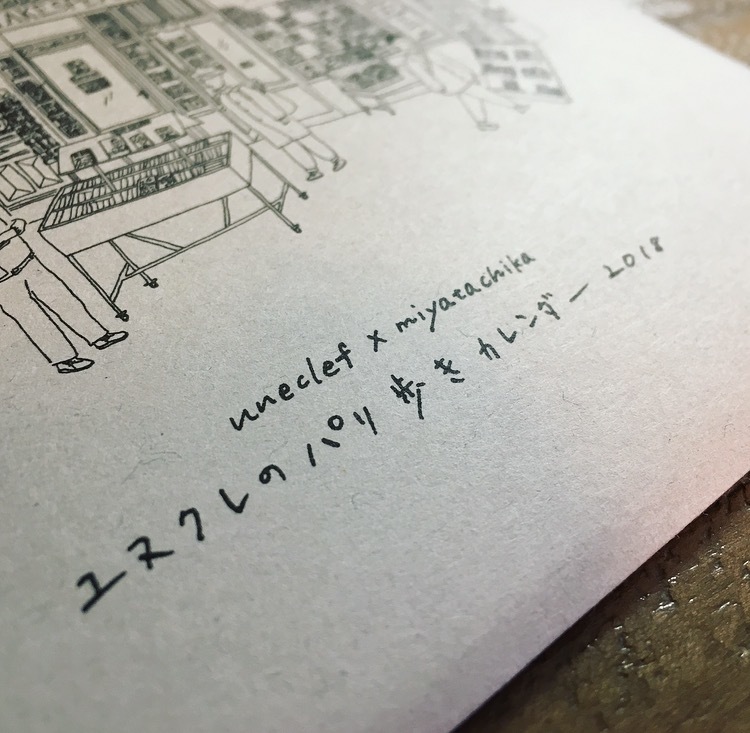 uneclef x miyatachika
ユヌクレのパリ歩きカレンダー 2018